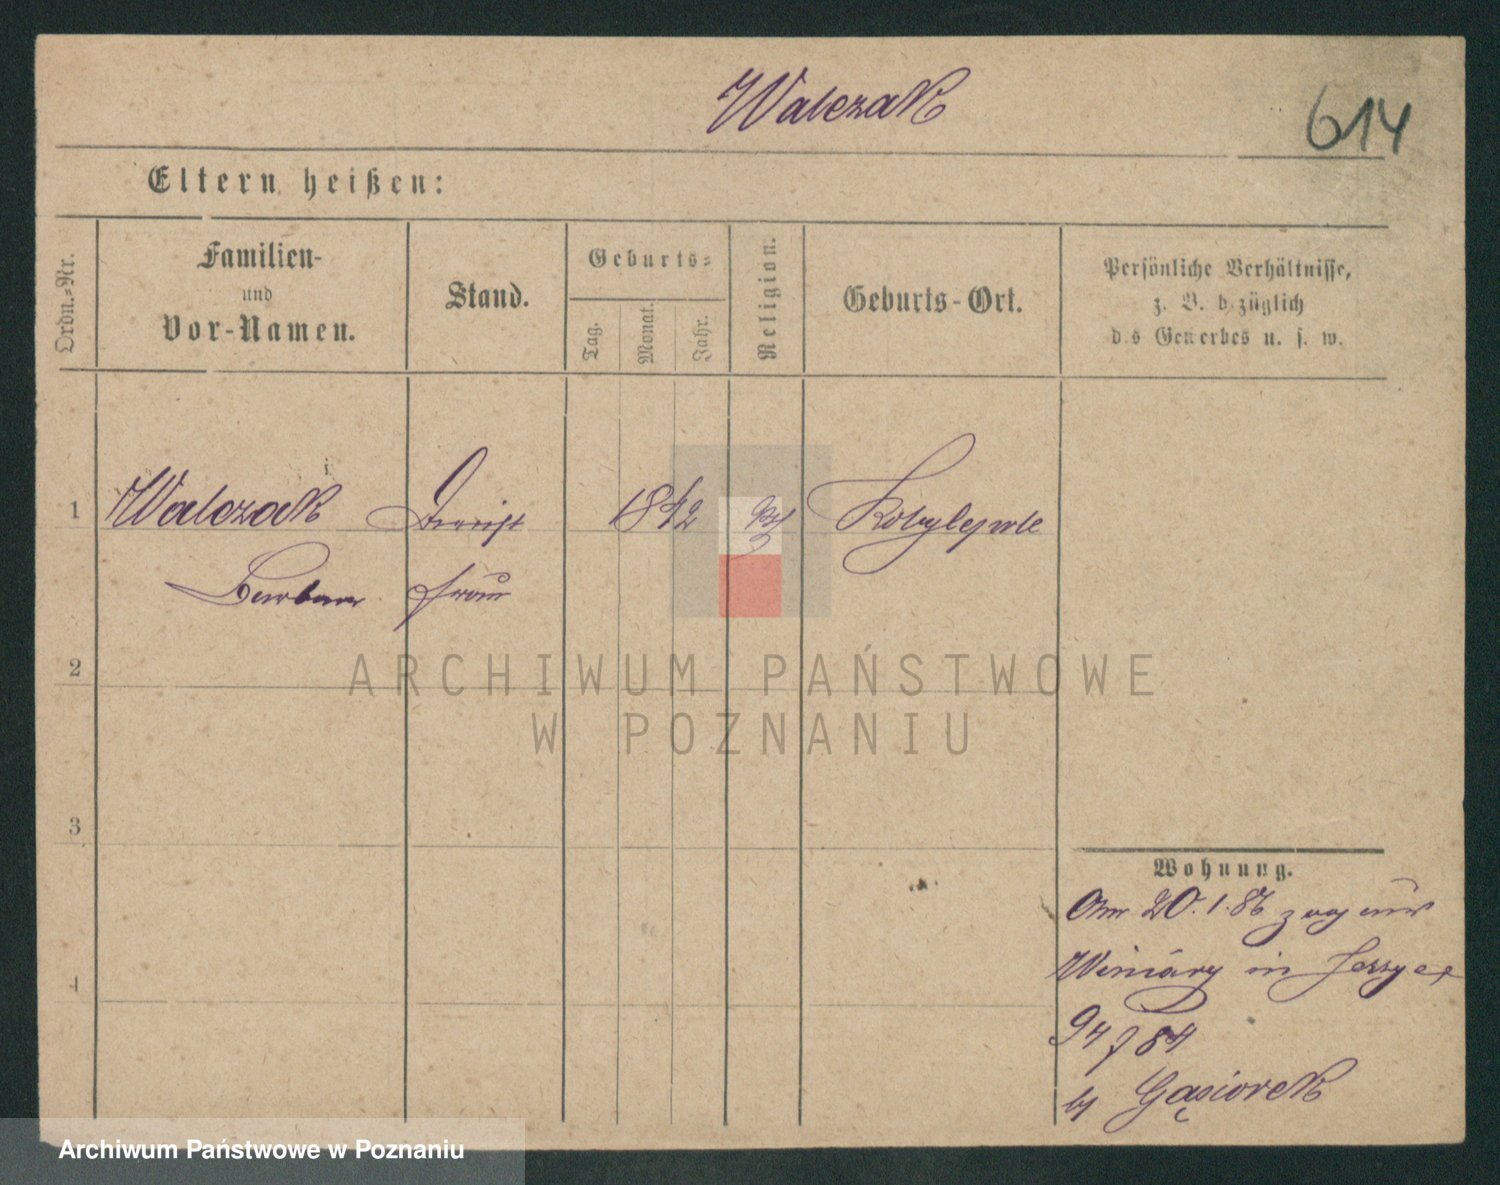 Walczak
614
Eltern heißen:
Ordn.-Nr.
Familien-
und
Vor-Namen.
Stand.
Geburts-
Tag.
Monat.
Jahr.
Religion.
Geburts-Ort.
Persönliche Verhältnisse,
z. B. b züglich
d s Gewerbes u. s. w.
1
Walczak
1842
Kobylepole
Barbara
Frau
2
3
4
Wohnung.
Am 20.1.86 zog aus
Winiary in Jerzyce
94 / 84
by Gąsiorek
ARCHIWUM PAŃSTWOWE
W POZNANIU
Archiwum Państwowe w Poznaniu